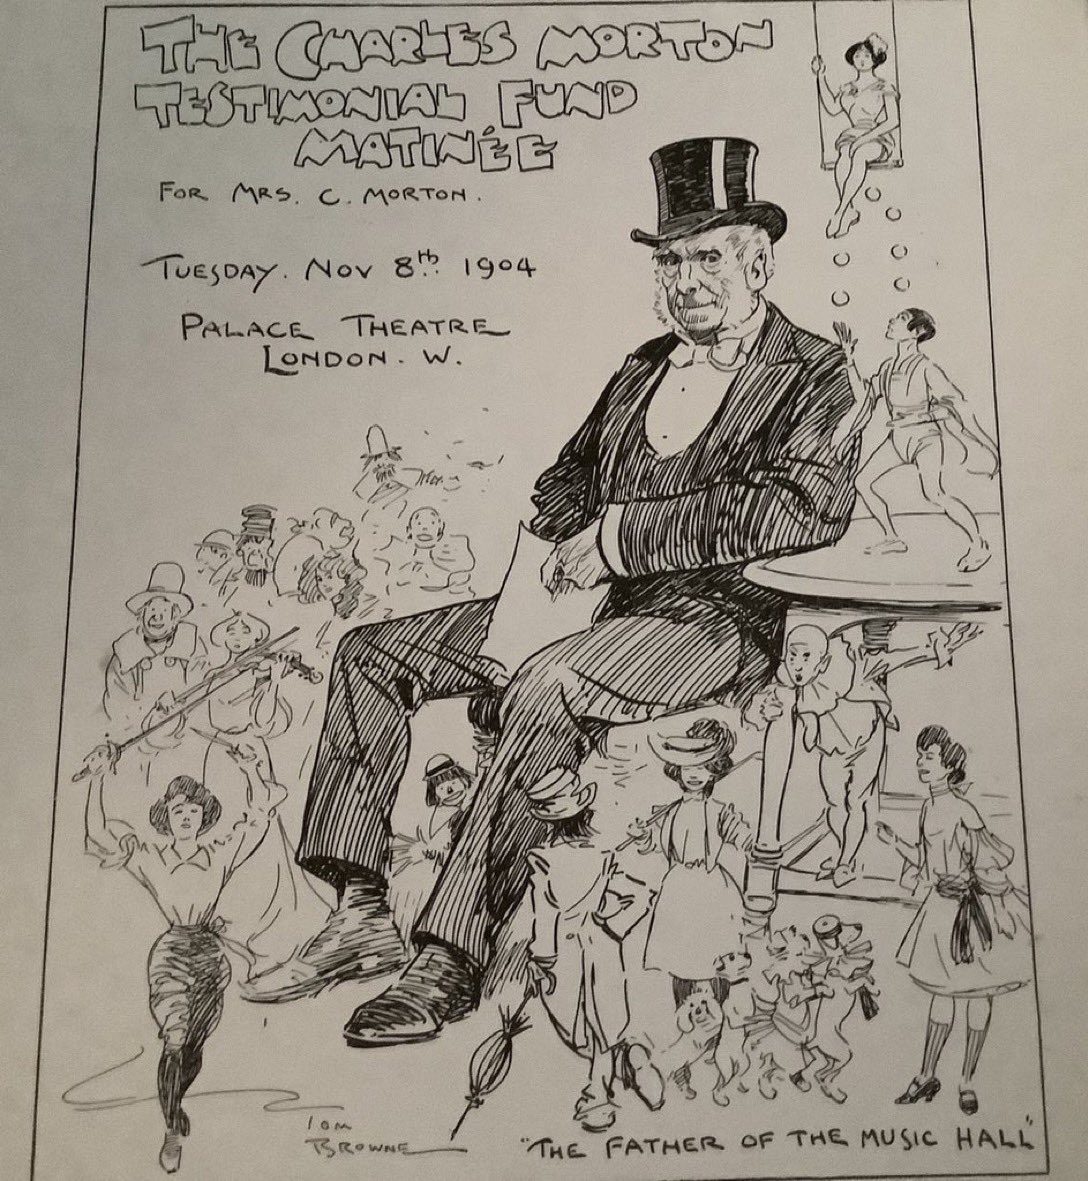 THE CHARLES MORTON
TESTIMONIAL FUND
MATINÉE
FOR MRS. C. MORTON.
TUESDAY. NOV 8TH. 1904
PALACE THEATRE
LONDON. W.
TOM
BROWNE
"THE FATHER OF THE MUSIC HALL"